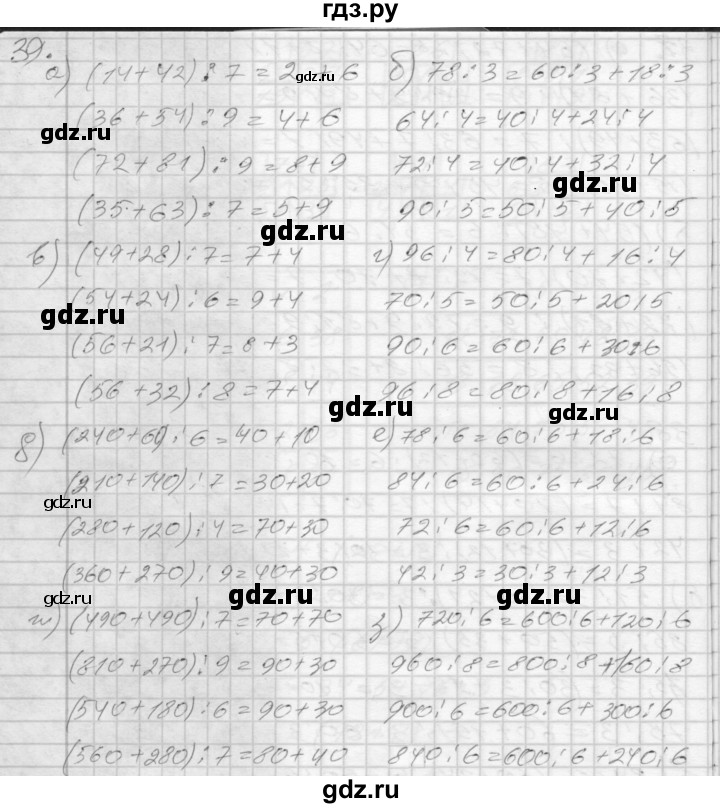 гдз.ру
39.
а) (14+42):7=2+6 б) 78:3=60:3+18:3
(36+54):9=4+6 64:4=40:4+24:4
(72+81):9=8+9 72:4=40:4+32:4
(35+63):7=5+9 90:5=50:5+40:5
в) (49+28):7=7+4 г) 96:4=80:4+16:4
(54+24):6=9+4 70:5=50:5+20:5
(56+21):7=8+3 90:6=60:6+30:6
(56+32):8=7+4 96:8=80:8+16:8
д) (240+60):6=40+10 е) 78:6=60:6+18:6
(210+140):7=30+20 84:6=60:6+24:6
(280+120):4=70+30 72:6=60:6+12:6
(360+270):9=40+30 42:3=30:3+12:3
ж) (490+490):7=70+70 з) 720:6=600:6+120:6
(810+270):9=90+30 960:8=800:8+160:8
(540+180):6=90+30 900:6=600:6+300:6
(560+280):7=80+40 840:6=600:6+240:6
gdz.ru
gdz.ru
gdz.ru
gdz.ru
gdz.ru
gdz.ru
gdz.ru
gdz.ru
gdz.ru
gdz.ru
gdz.ru
gdz.ru
gdz.ru